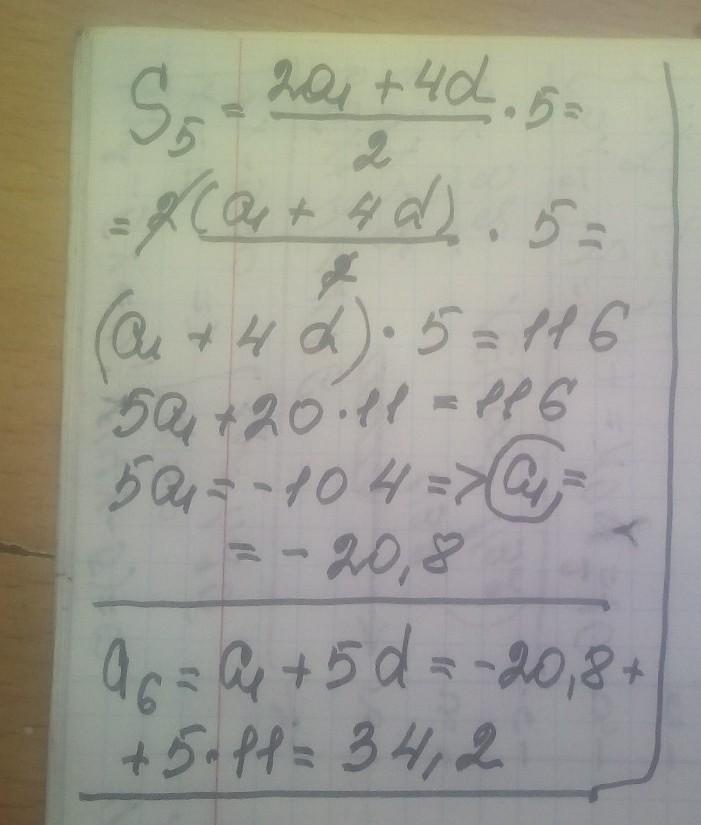 S₅ = (2a₁ + 4d)/2 · 5 =
= 2(a₁ + 4d)/2 · 5 =
(a₁ + 4d) · 5 = 116
5a₁ + 20 · 11 = 116
5a₁ = -104 => a₁ =
= -20,8
a₆ = a₁ + 5d = -20,8 +
+ 5 · 11 = 34,2